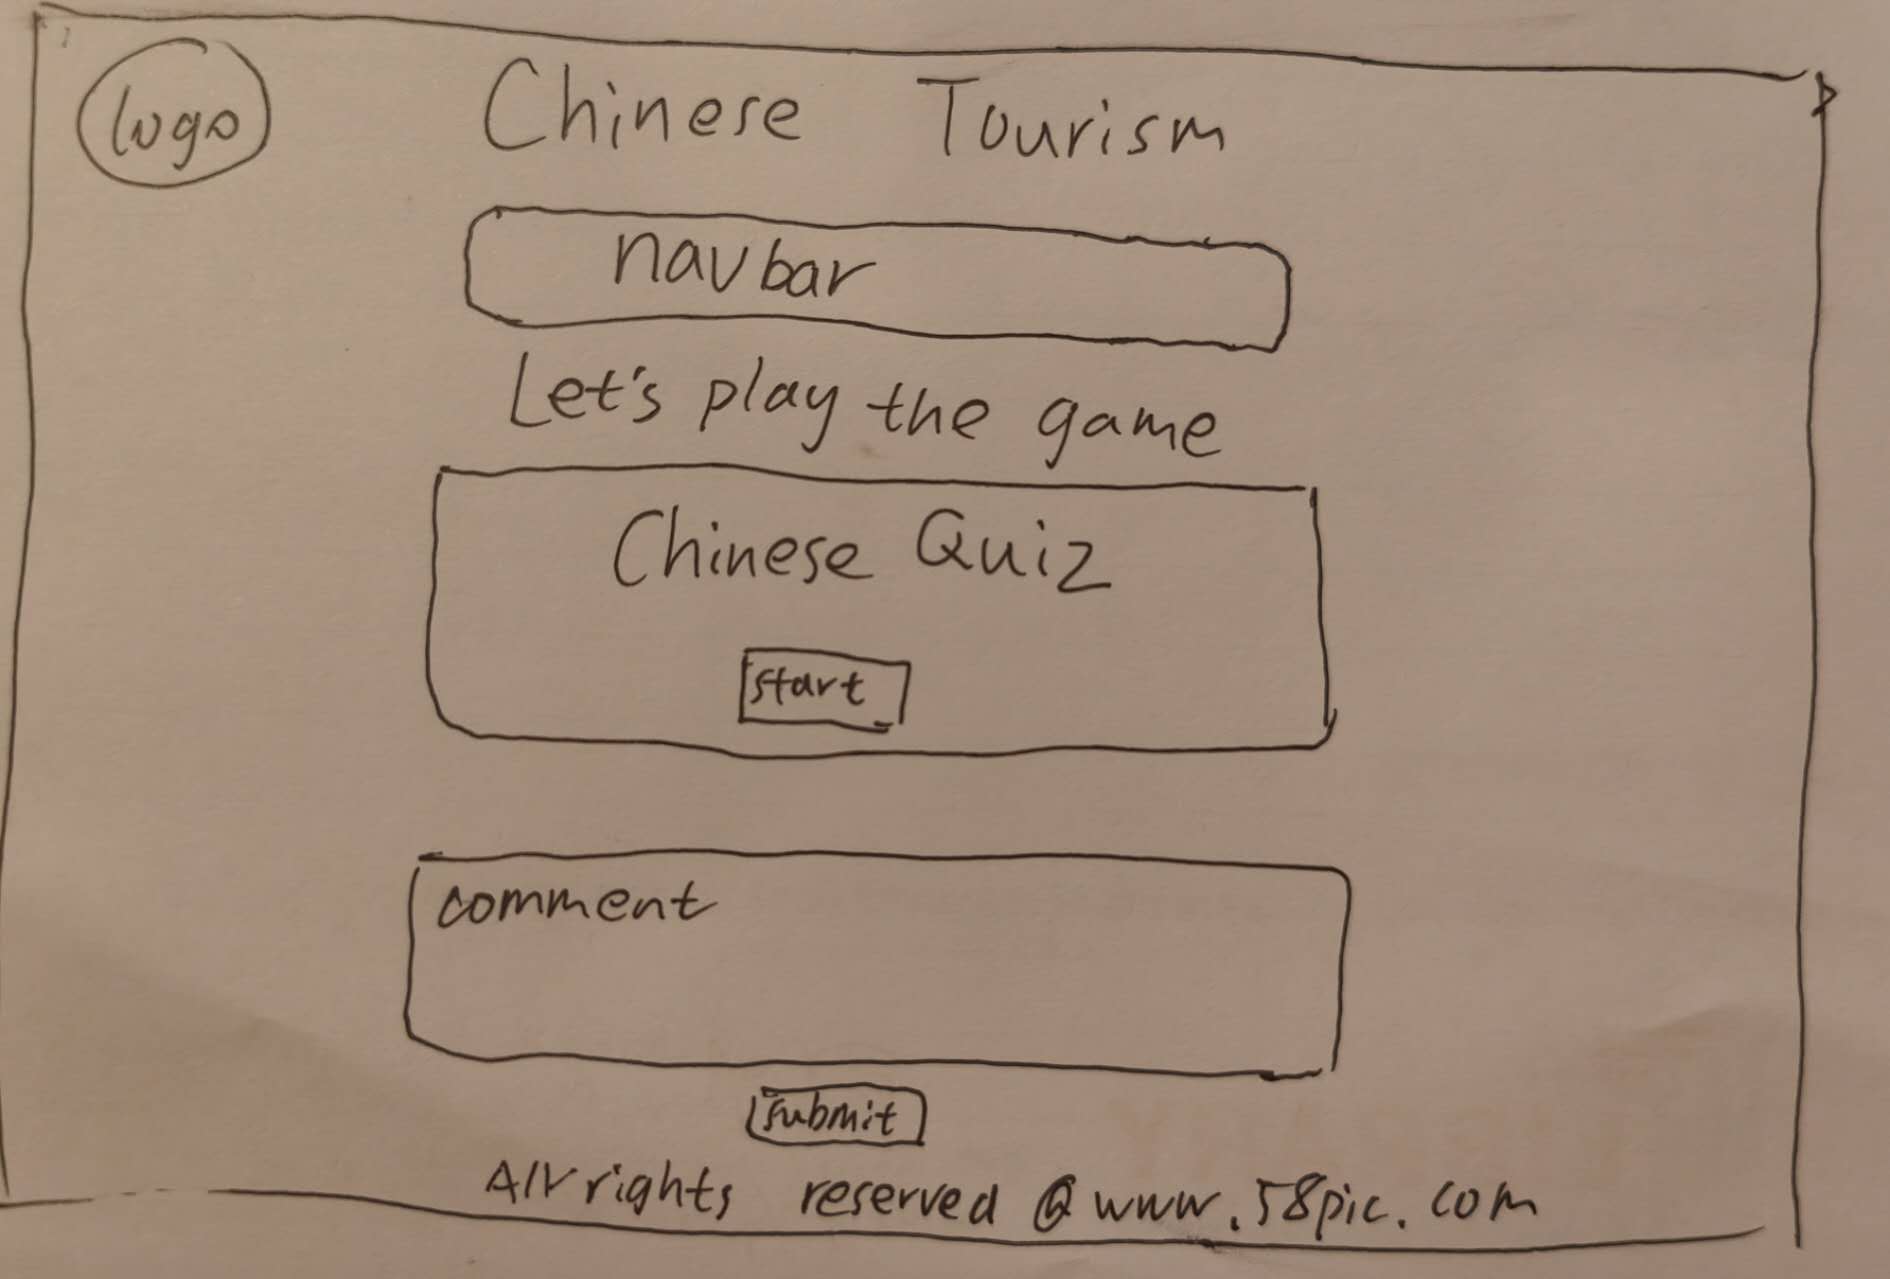 logo
Chinese Tourism
navbar
Let's play the game
Chinese Quiz
start
comment
submit
All rights reserved @ www.58pic.com